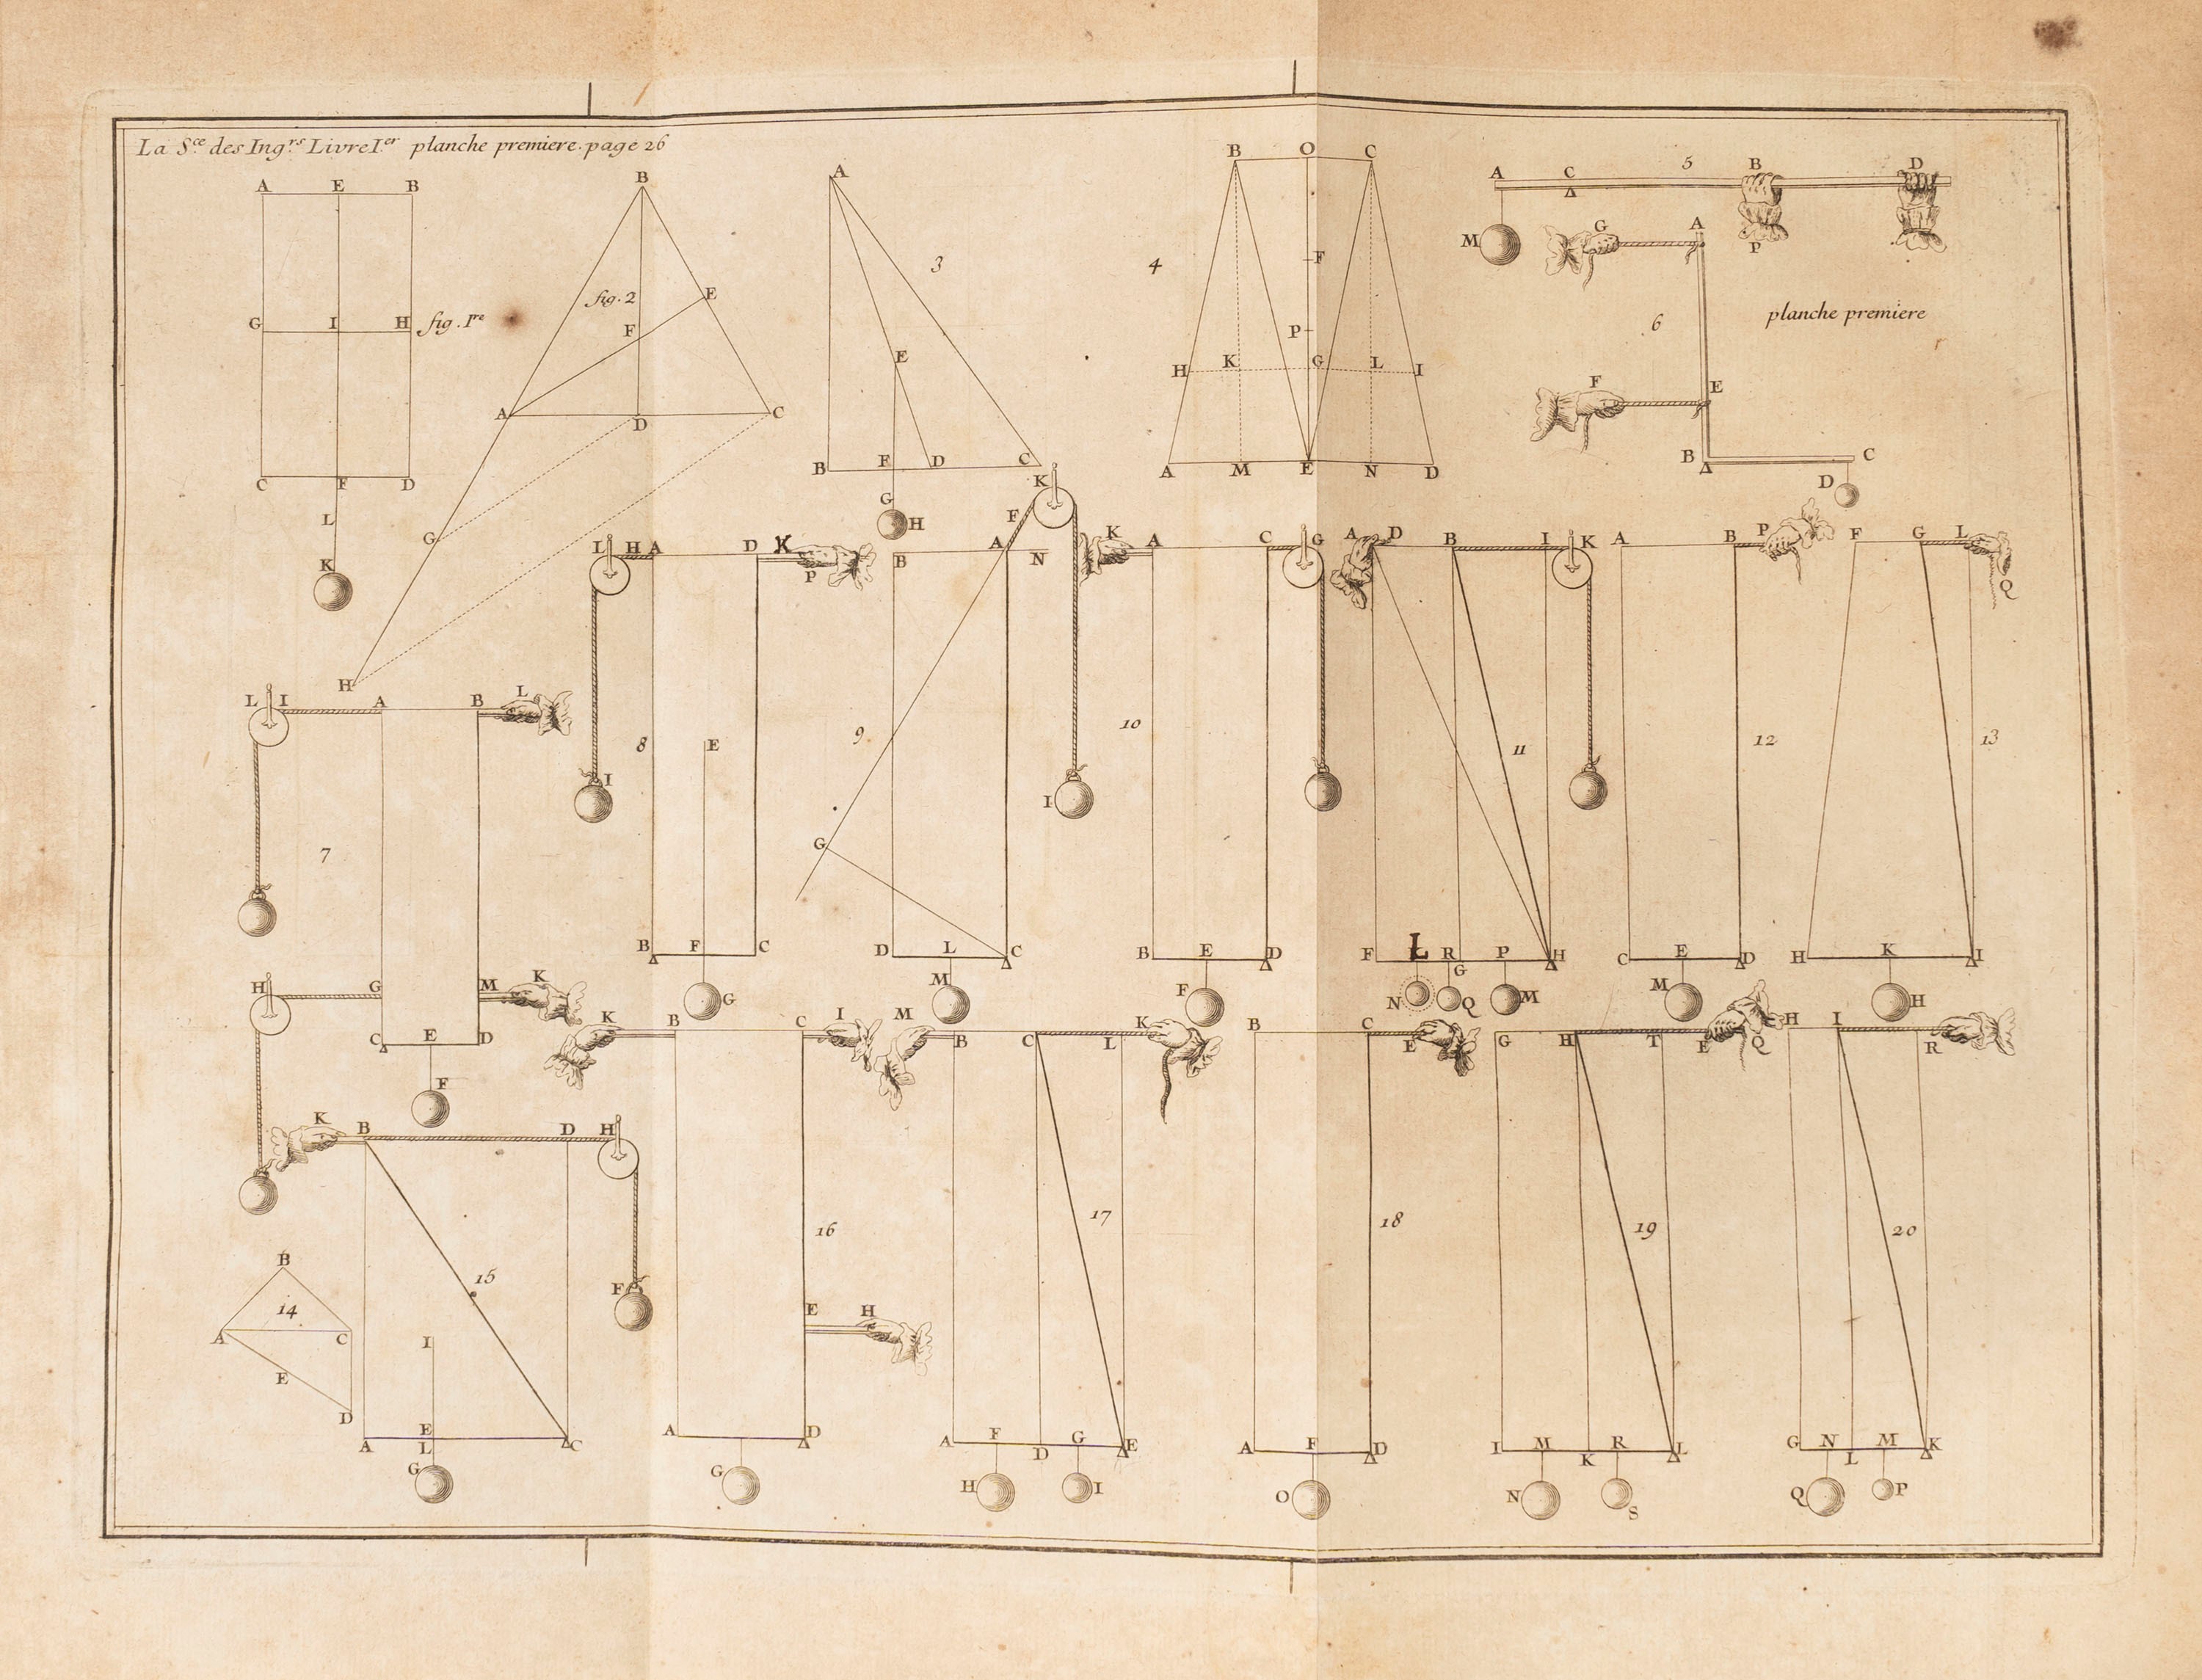 La S.ce des Ing.rs Livre I.er planche premiere. page 26
A E B
G I H fig. I.re
C F D
L
K
B
fig. 2
E
F
A D C
G
H
A
3
E
B F D C
G
H
B O C
4
F
P
H K G L I
A M E N D
A C 5 B D
M
P
G A
6
planche premiere
F E
B C
D
L I A B L
7
H G M K
C E D
F
L H A D K
P
8
E
I
B F C
G
K
F
B A N
9
I
G
D L C
M
K A C G
10
B E D
F
A D B I K
11
F L R P H
G
N Q M
A B P
12
C E D
M
F G L
Q
13
H K I
H
B
14
A C
E
D
K B D H
15
F
I
E
A L C
G
K B C I
16
E H
A D
G
M B C L K
17
A F D G E
H I
B C
E
18
A F D
O
G H T E Q
19
I M K R L
N S
H I
R
20
G N L M K
Q P